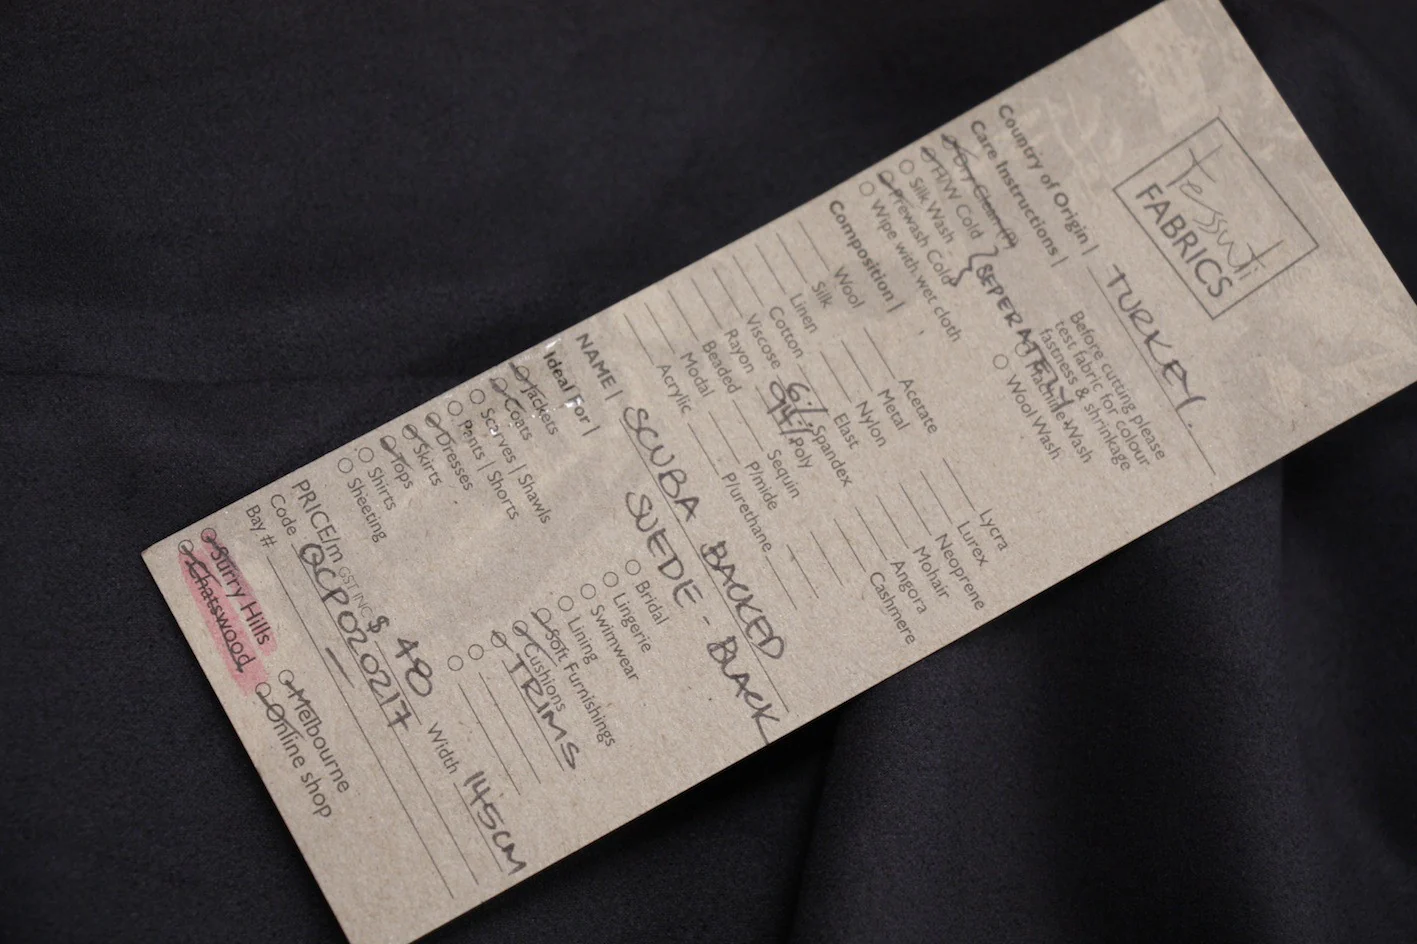 Tessuti
FABRICS
Country of Origin | TURKEY.
Care Instructions |
Before cutting please
test fabric for colour
fastness & shrinkage
Dry Clean (P)
H/W Cold } SEPERATELY
Silk Wash
Prewash Cold }
Wipe with wet cloth
Machine Wash
Wool Wash
Composition |
Wool Acetate Lycra
Silk Metal Lurex
Linen Nylon Neoprene
Cotton Elast Mohair
Viscose 6% Spandex Angora
Rayon 94% Poly Cashmere
Beaded Sequin
Modal P/mide
Acrylic P/urethane
NAME | SCUBA BACKED
SUEDE - BLACK
Ideal For |
Jackets Bridal
Coats Lingerie
Scarves | Shawls Swimwear
Pants | Shorts Lining
Dresses Soft Furnishings
Skirts Cushions
Tops TRIMS
Shirts
Sheeting
PRICE/m GST INC $ 48 Width 145CM
Code QCP020217
Bay #
Surry Hills Melbourne
Chatswood Online shop